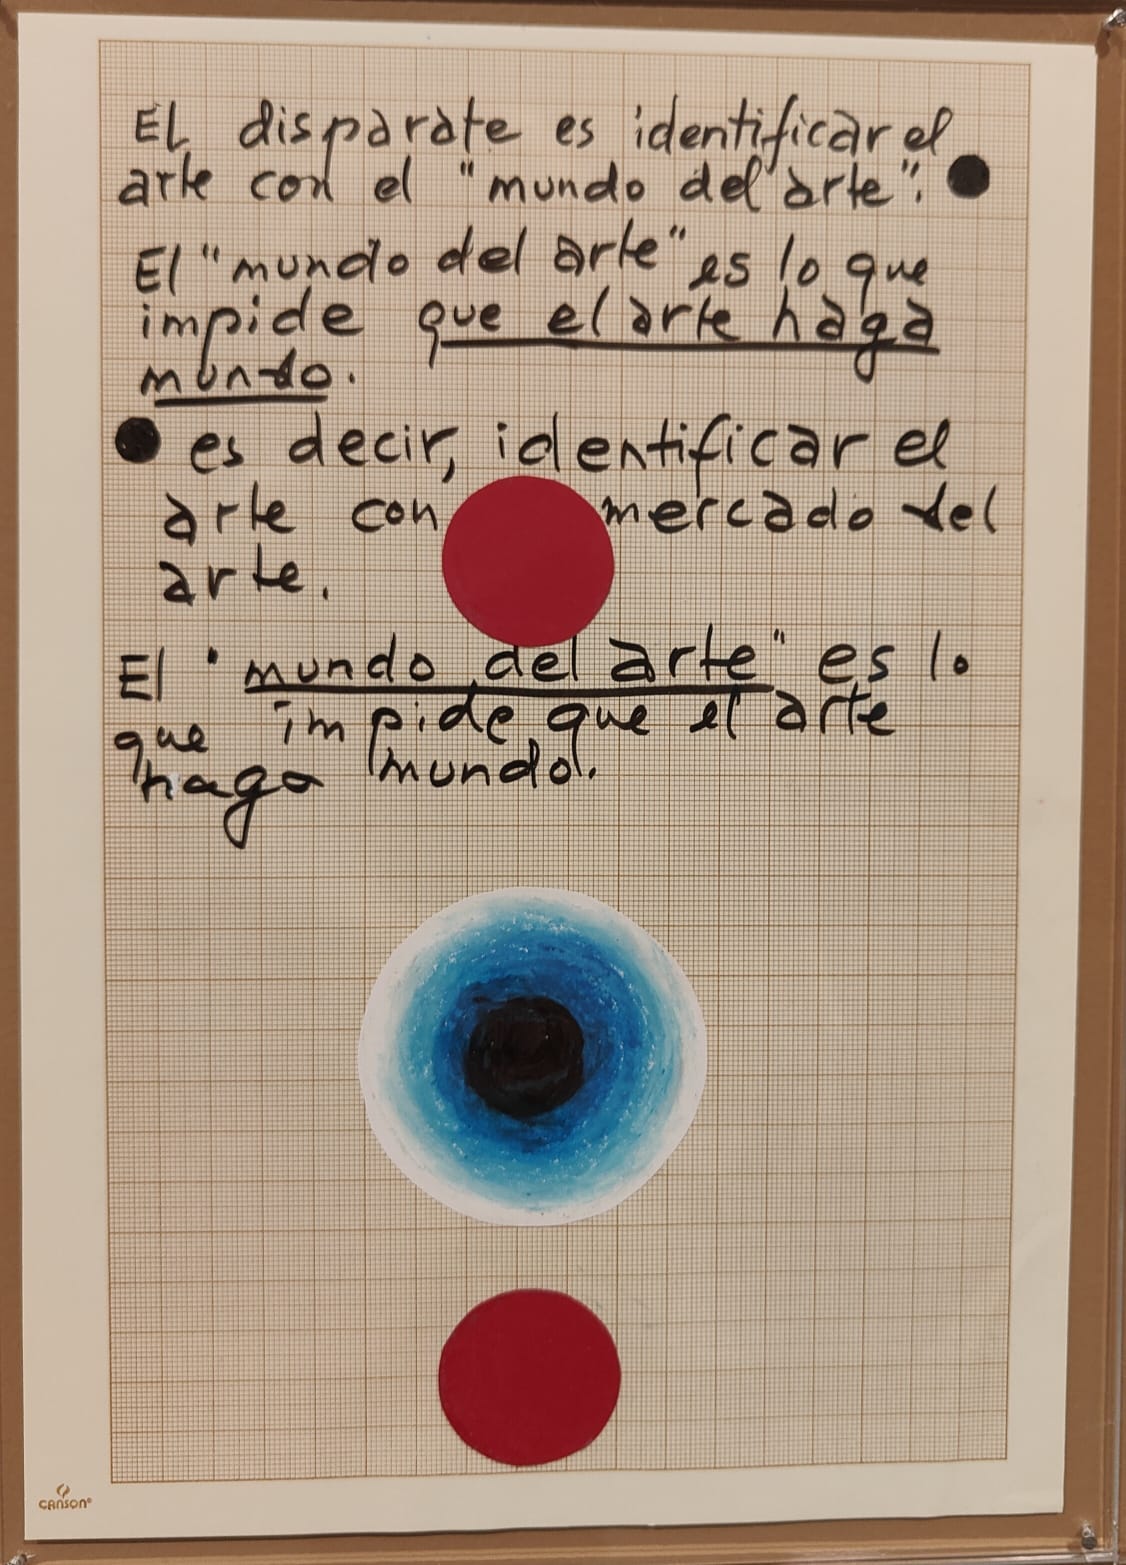 EL disparate es identificar el
arte con el "mundo del arte". ●
El "mundo del arte" es lo que
impide que el arte haga
mundo.
● es decir, identificar el
arte con mercado del
arte.
El "mundo del arte" es lo
que impide que el arte
haga mundo.
CANSON®